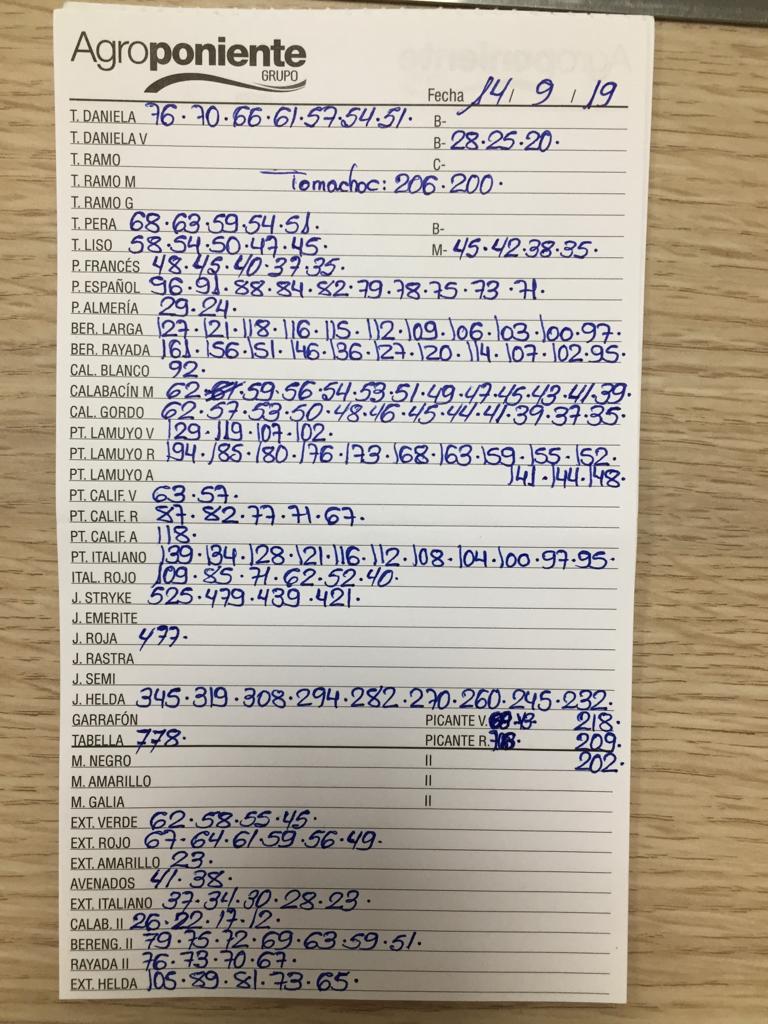 Agroponiente
GRUPO
Fecha 14 / 9 / 19
T. DANIELA 76·70·66·61·57·54·51· B-
T. DANIELA V B- 28·25·20·
T. RAMO C-
T. RAMO M Tomachoc: 206·200·
T. RAMO G
T. PERA 68·63·59·54·51· B-
T. LISO 58·54·50·47·45· M- 45·42·38·35·
P. FRANCÉS 48·45·40·37·35·
P. ESPAÑOL 96·91·88·84·82·79·78·75·73·71·
P. ALMERÍA 29·24·
BER. LARGA 127·121·118·116·115·112·109·106·103·100·97·
BER. RAYADA 161·156·151·146·136·127·120·114·107·102·95·
CAL. BLANCO 92·
CALABACÍN M 62·59·56·54·53·51·49·47·45·43·41·39·
CAL. GORDO 62·57·53·50·48·46·45·44·41·39·37·35·
PT. LAMUYO V 129·119·107·102·
PT. LAMUYO R 194·185·180·176·173·168·163·159·155·152·
PT. LAMUYO A 141·144·148·
PT. CALIF. V 63·57·
PT. CALIF. R 87·82·77·71·67·
PT. CALIF. A 118·
PT. ITALIANO 139·134·128·121·116·112·108·104·100·97·95·
ITAL. ROJO 109·85·71·62·52·40·
J. STRYKE 525·479·439·421·
J. EMERITE
J. ROJA 477·
J. RASTRA
J. SEMI
J. HELDA 345·319·308·294·282·270·260·245·232·
GARRAFÓN PICANTE V. 218·
TABELLA 778· PICANTE R. 209·
M. NEGRO II 202·
M. AMARILLO II
M. GALIA II
EXT. VERDE 62·58·55·45·
EXT. ROJO 67·64·61·59·56·49·
EXT. AMARILLO 23·
AVENADOS 41·38·
EXT. ITALIANO 37·34·30·28·23·
CALAB. II 26·22·17·12·
BERENG. II 79·75·72·69·63·59·51·
RAYADA II 76·73·70·67·
EXT. HELDA 105·89·81·73·65·